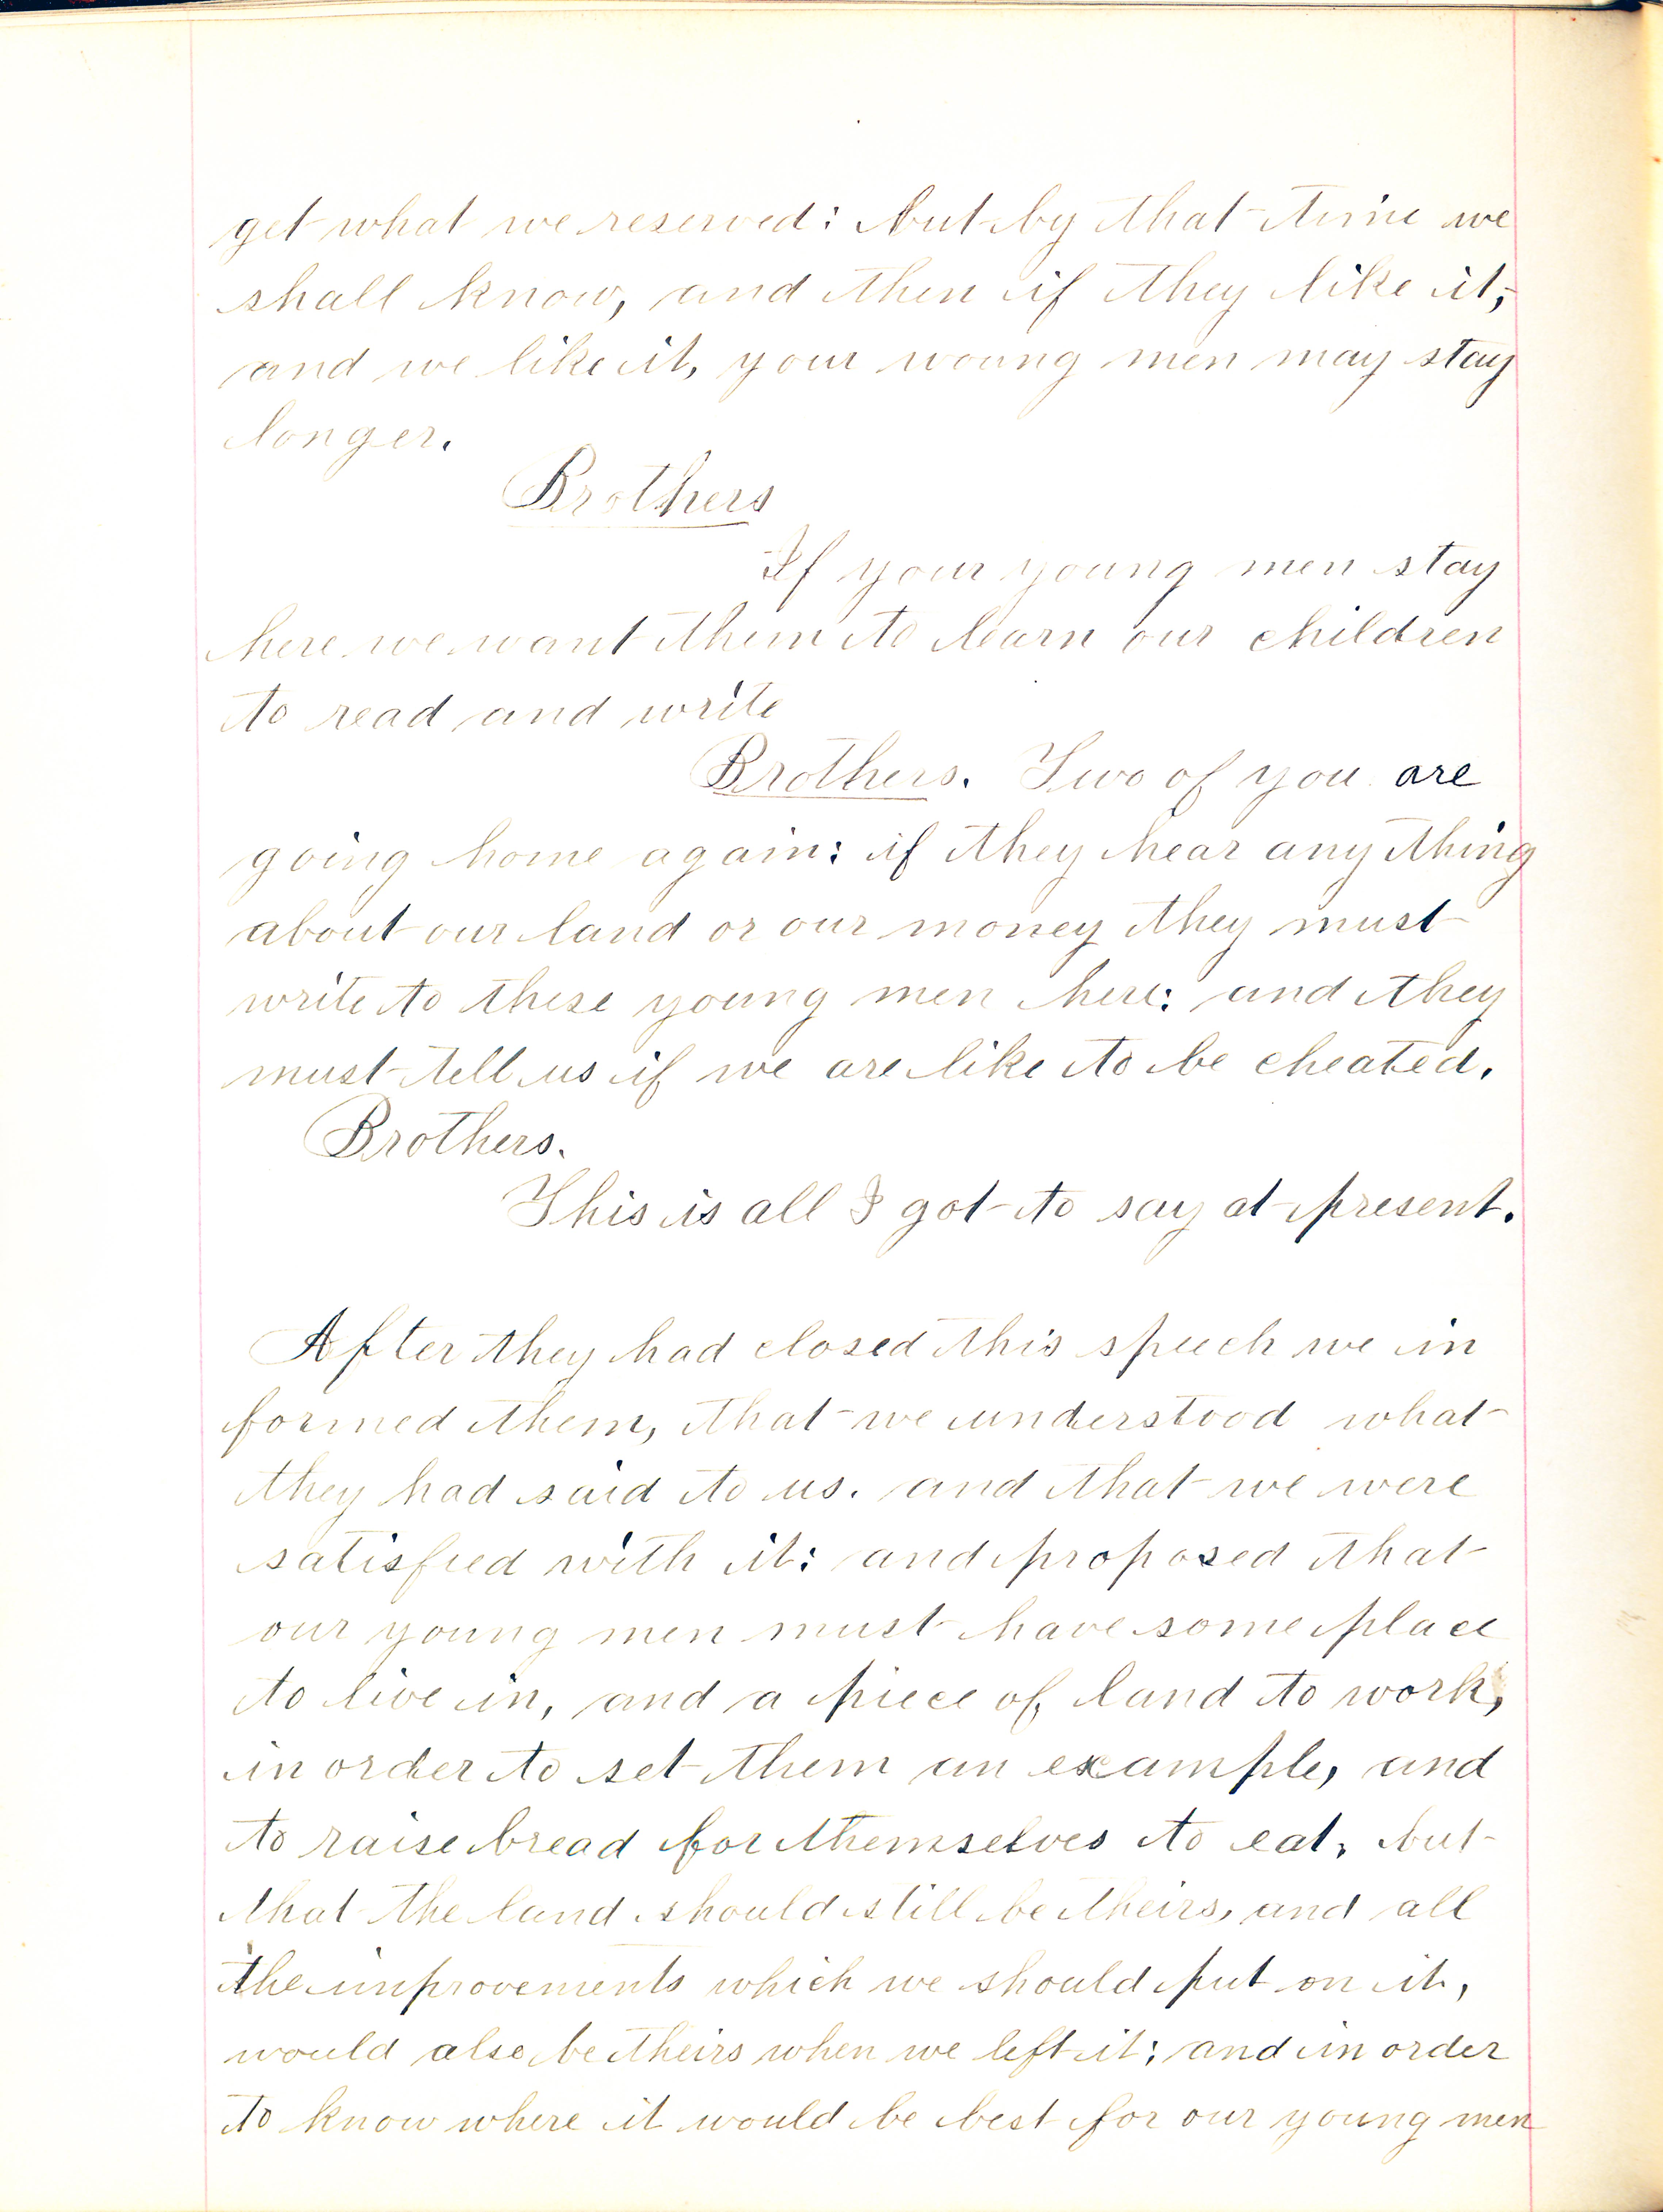 get what we reserved: but by that time we
shall know, and then if they like it,
and we like it, your woung men may stay
longer.
Brothers
If your young men stay
here we want them to learn our children
to read and write
Brothers. Two of you are
going home again: if they hear any thing
about our land or our money they must
write to these young men here: and they
must tell us if we are like to be cheated.
Brothers.
This is all I got to say at present.
After they had closed this speech we in
formed them, that we understood what
they had said to us. and that we were
satisfied with it: and proposed that
our young men must have some place
to live in, and a piece of land to work,
in order to set them an example, and
to raise bread for themselves to eat, but
that the land should still be theirs, and all
the improvements which we should put on it,
would also be theirs when we left it; and in order
to know where it would be best for our young men